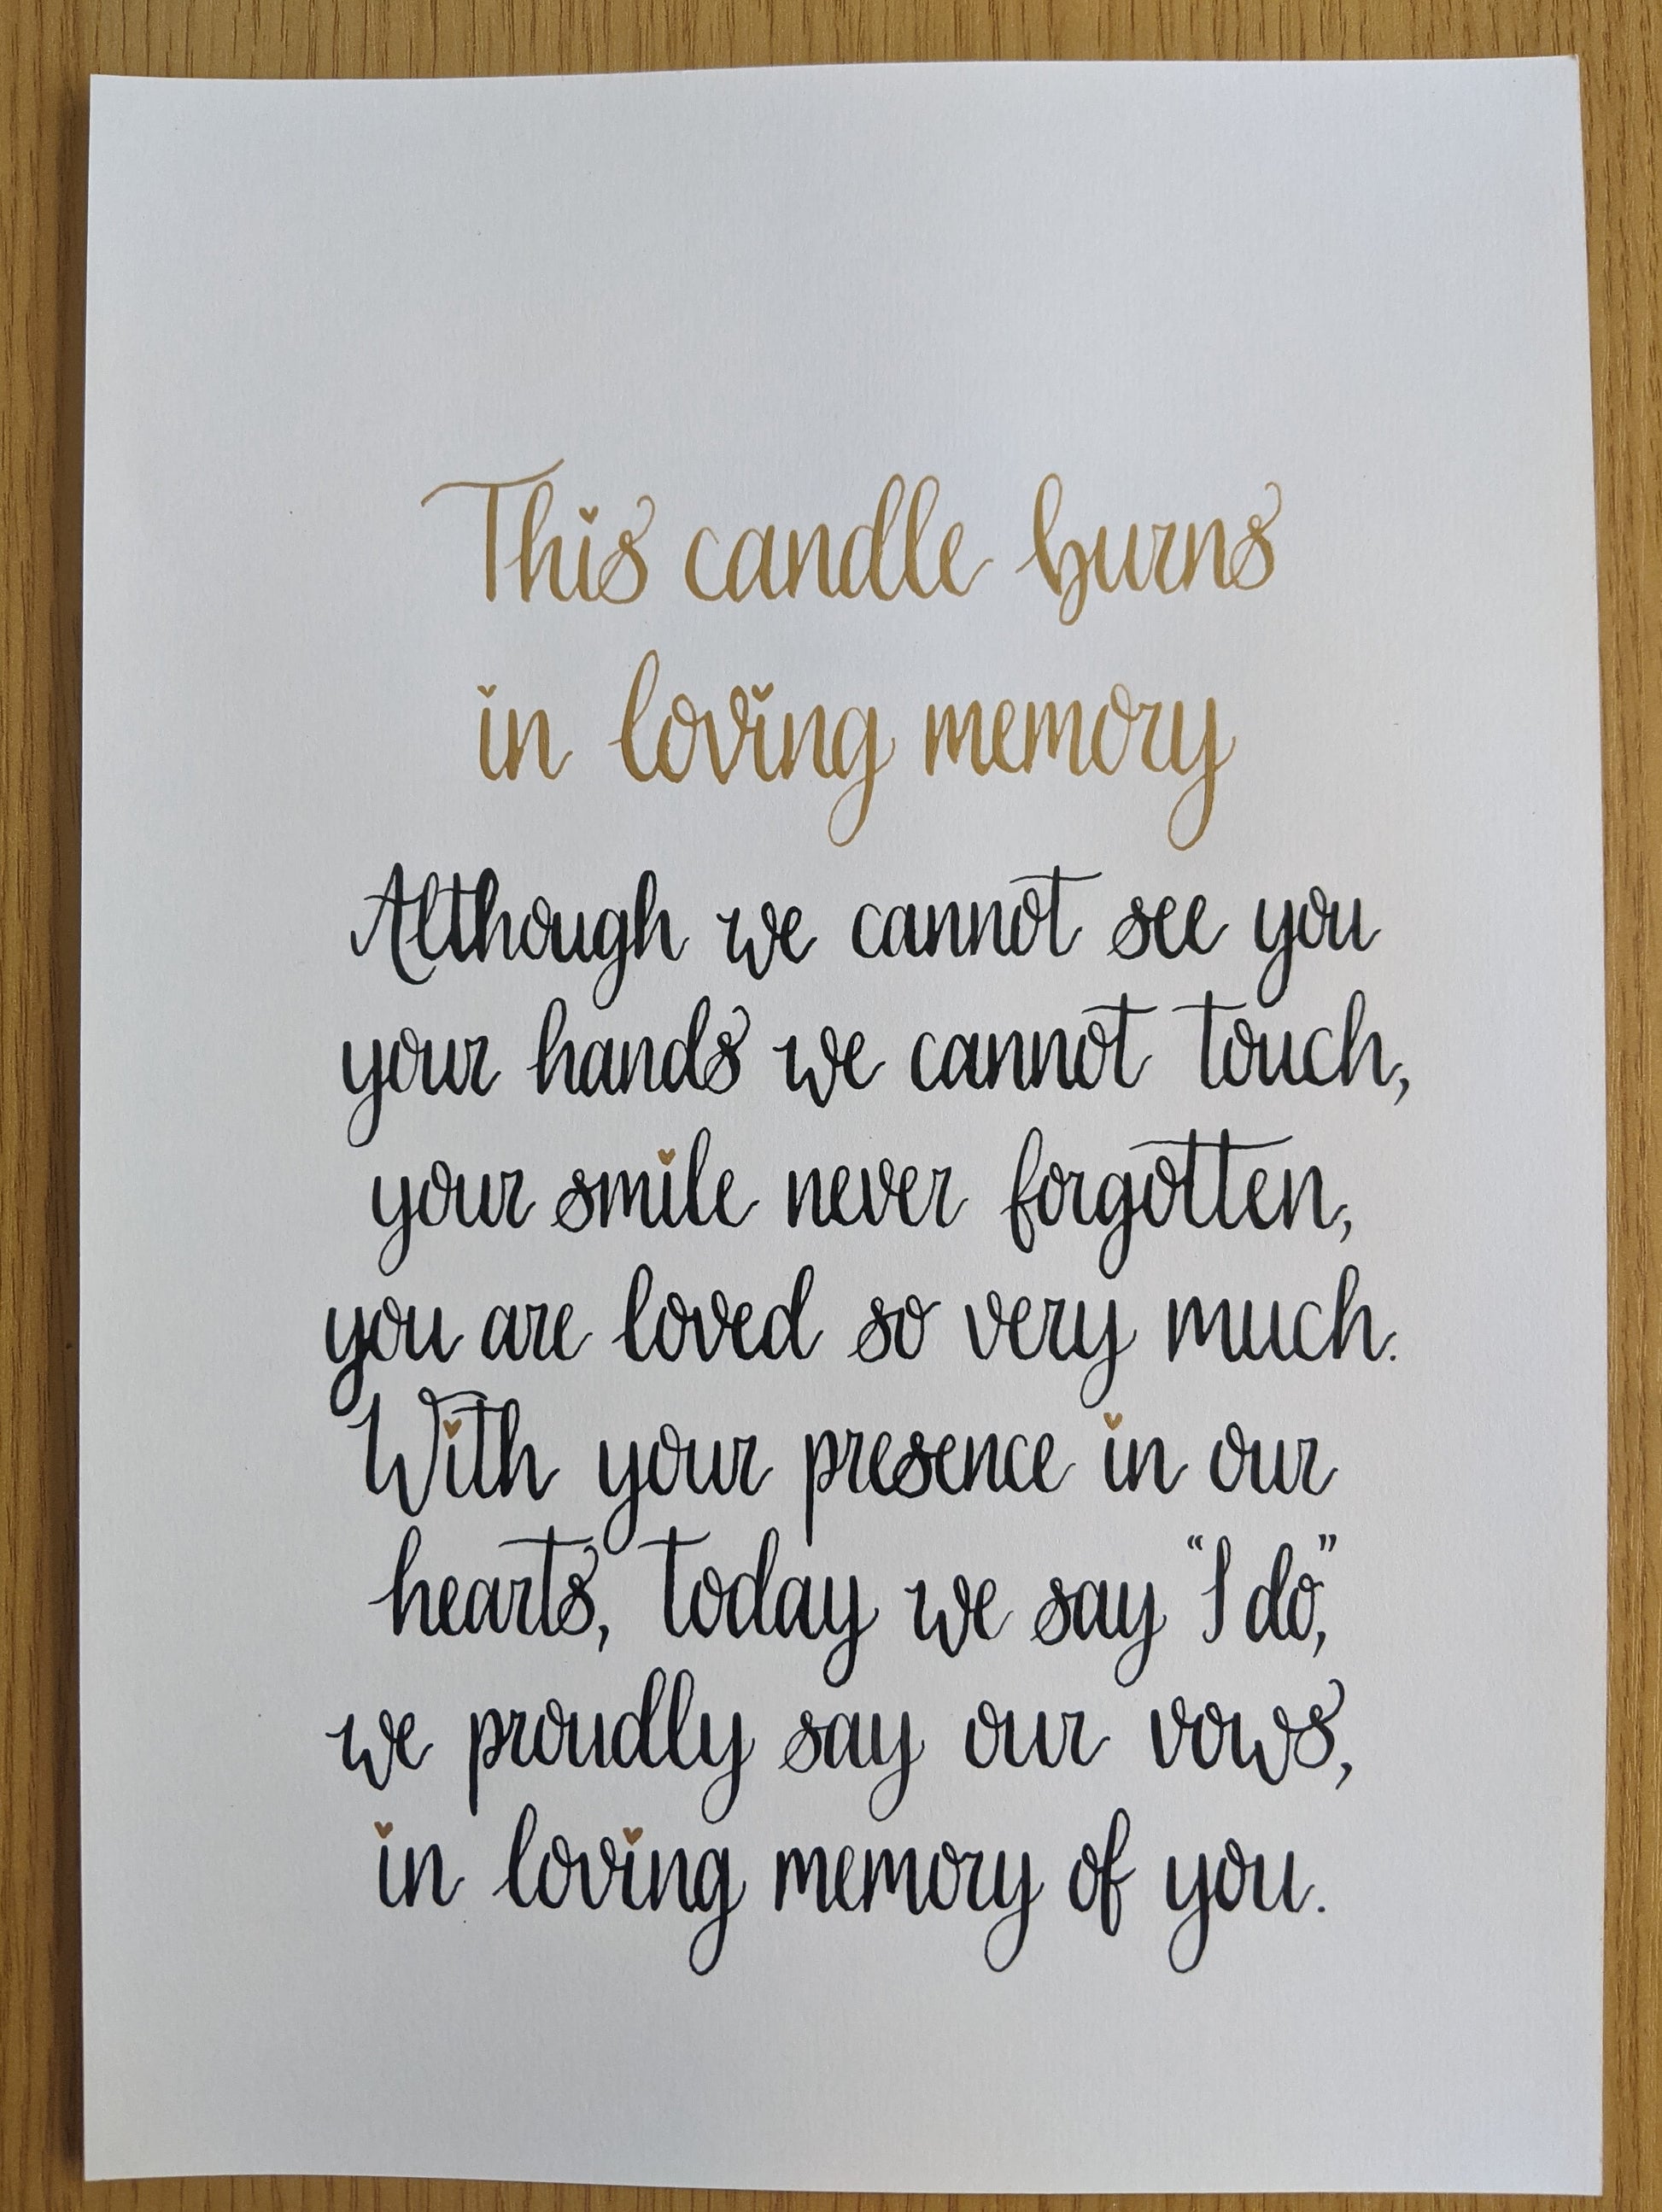 This candle burns
in loving memory
Although we cannot see you
your hands we cannot touch,
your smile never forgotten,
you are loved so very much.
With your presence in our
hearts, today we say “I do,”
we proudly say our vows,
in loving memory of you.